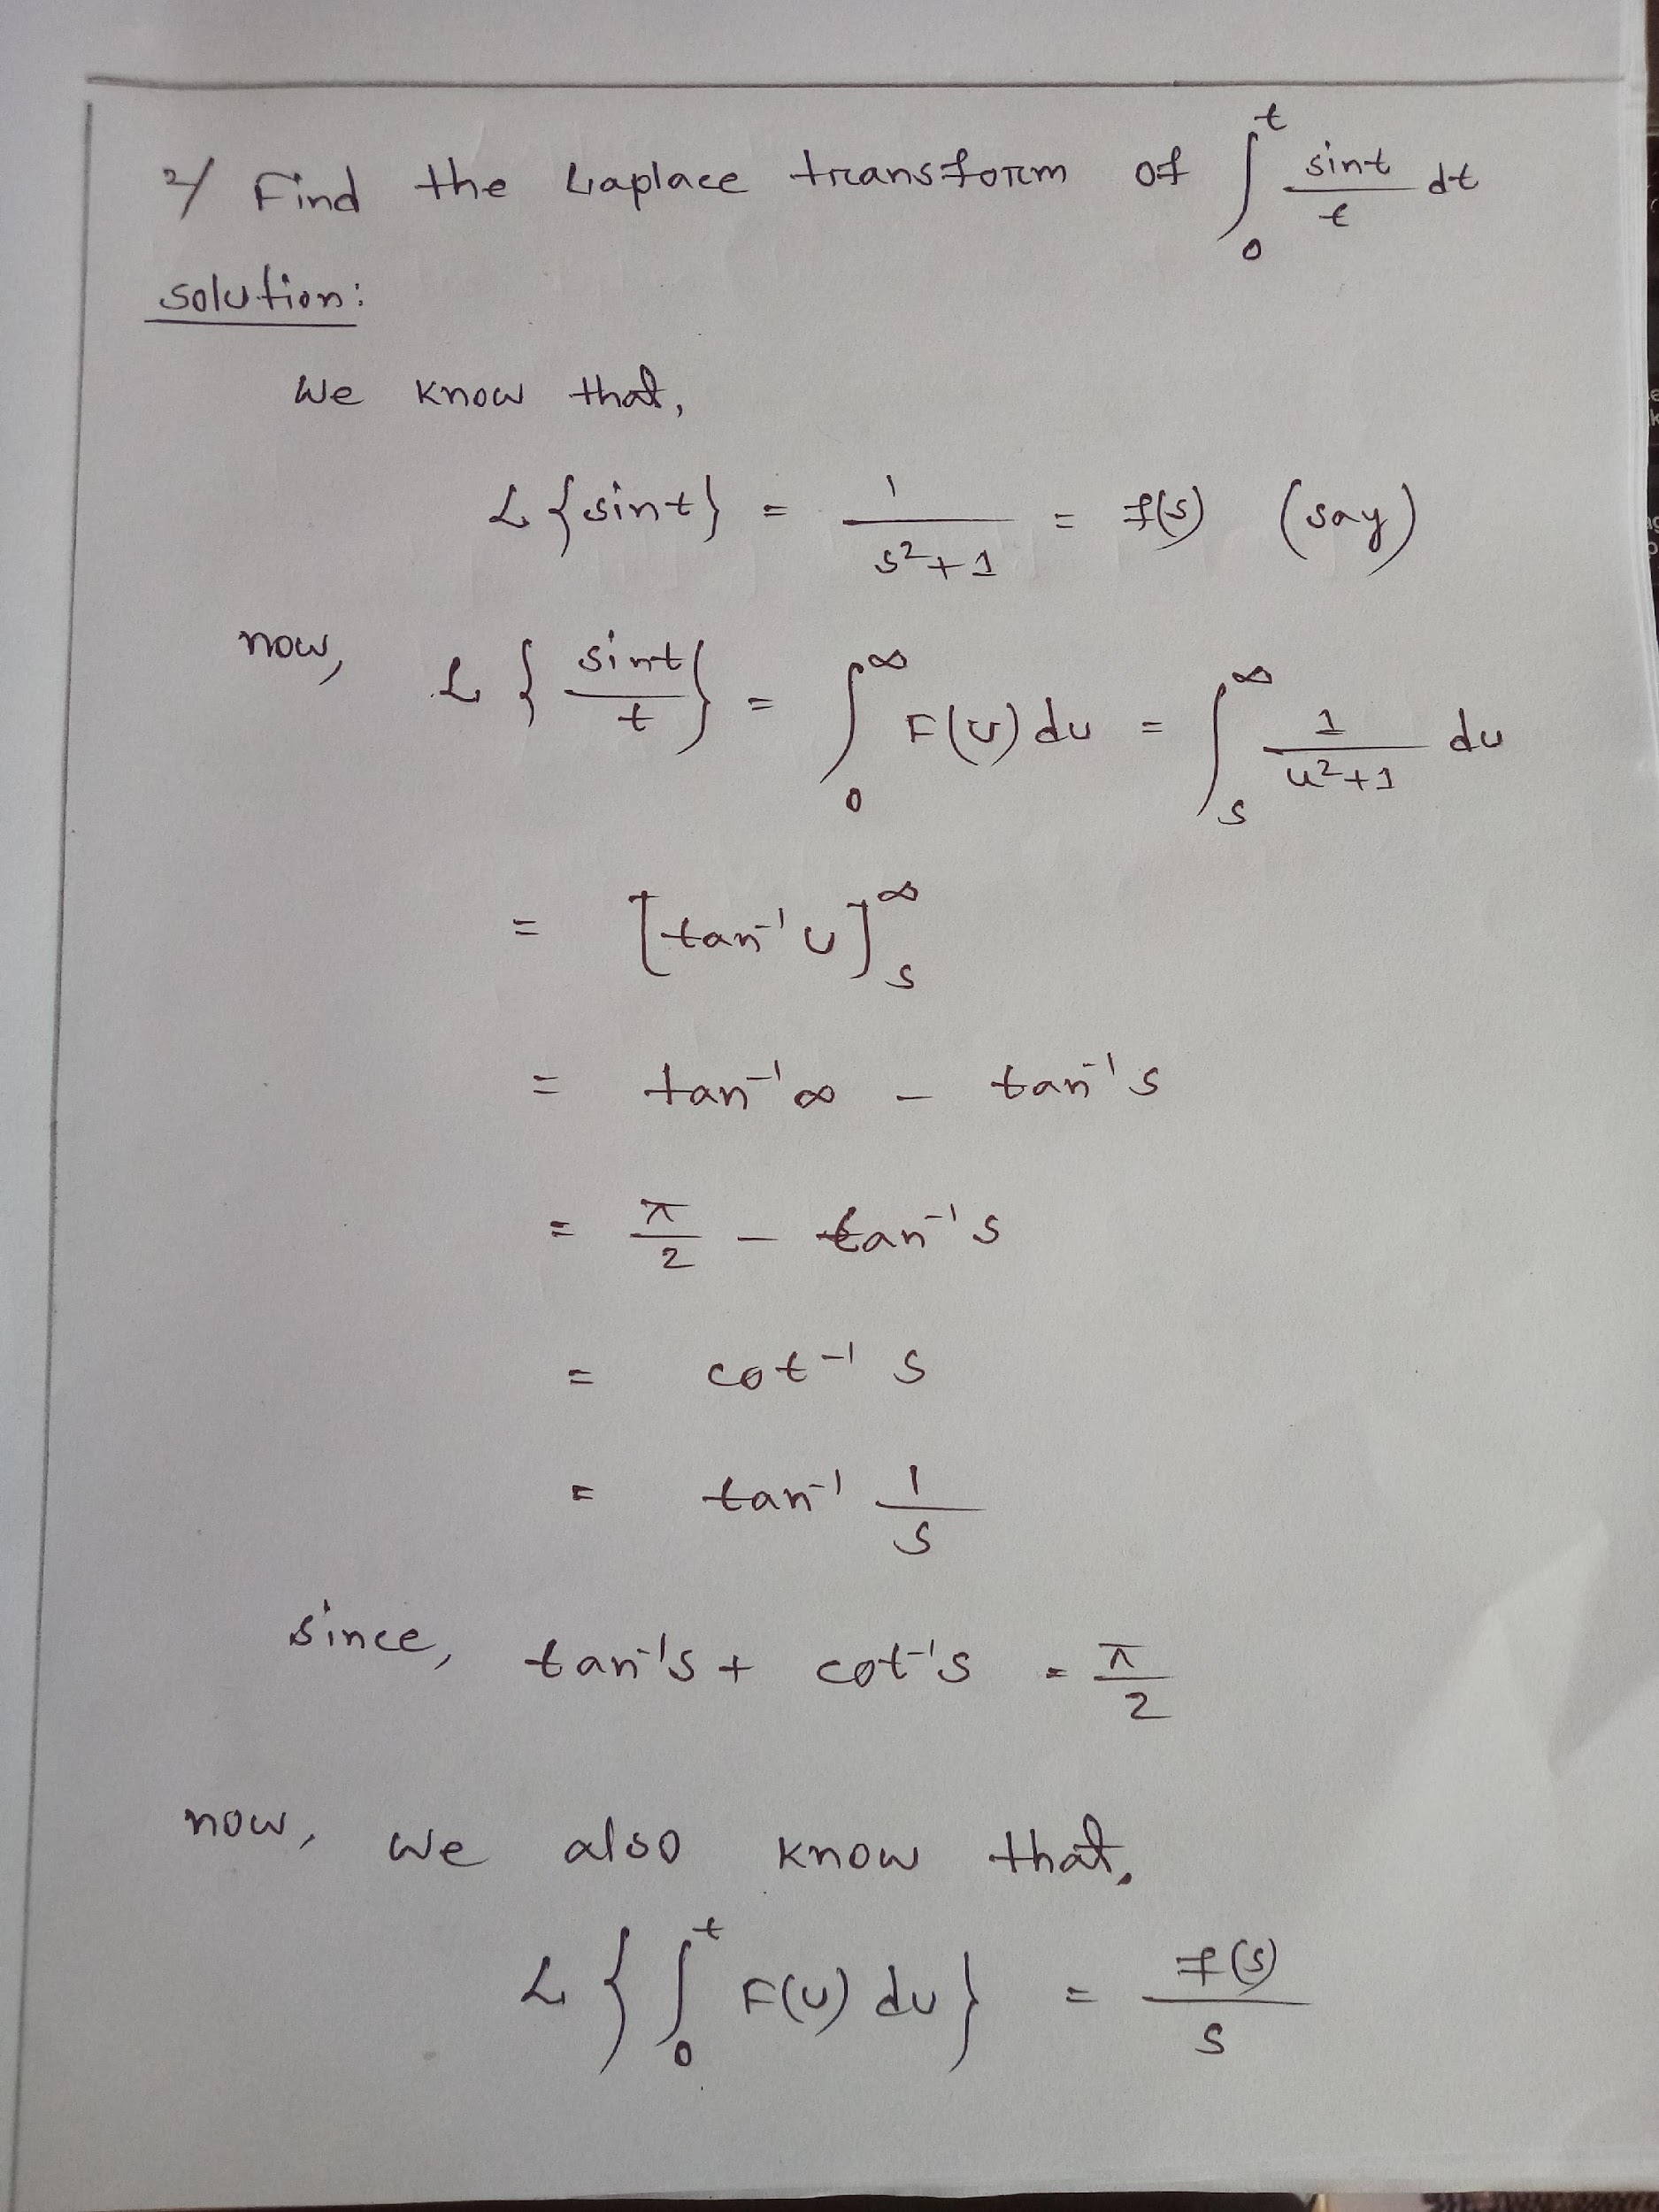 2/ Find the Laplace transform of ∫₀ᵗ sint/t dt
solution:
We know that,
L{sint} = 1/(s²+1) = f(s) (say)
now, L{sint/t} = ∫₀^∞ F(u) du = ∫ₛ^∞ 1/(u²+1) du
= [tan⁻¹u]ₛ^∞
= tan⁻¹∞ - tan⁻¹s
= π/2 - tan⁻¹s
= cot⁻¹ s
= tan⁻¹ 1/s
since, tan⁻¹s + cot⁻¹s = π/2
now, we also know that,
L{∫₀ᵗ F(u) du} = f(s)/s